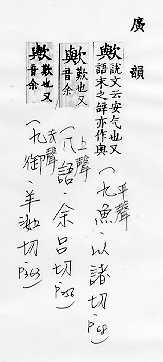 廣韻
歟 說文云安气也又
語末之辭亦作與
平聲
(九魚·以諸切 p68)
歟 歎也又
音余
上聲
(八語·余呂切 p256)
歟 歎也又
音余
去聲
(九御·羊洳切 p363)